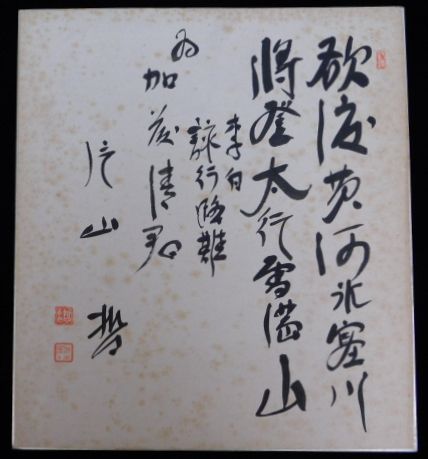 欲渡黄河氷塞川
將登太行雪満山
李白
詠行路難
為
加茂清君
片山哲